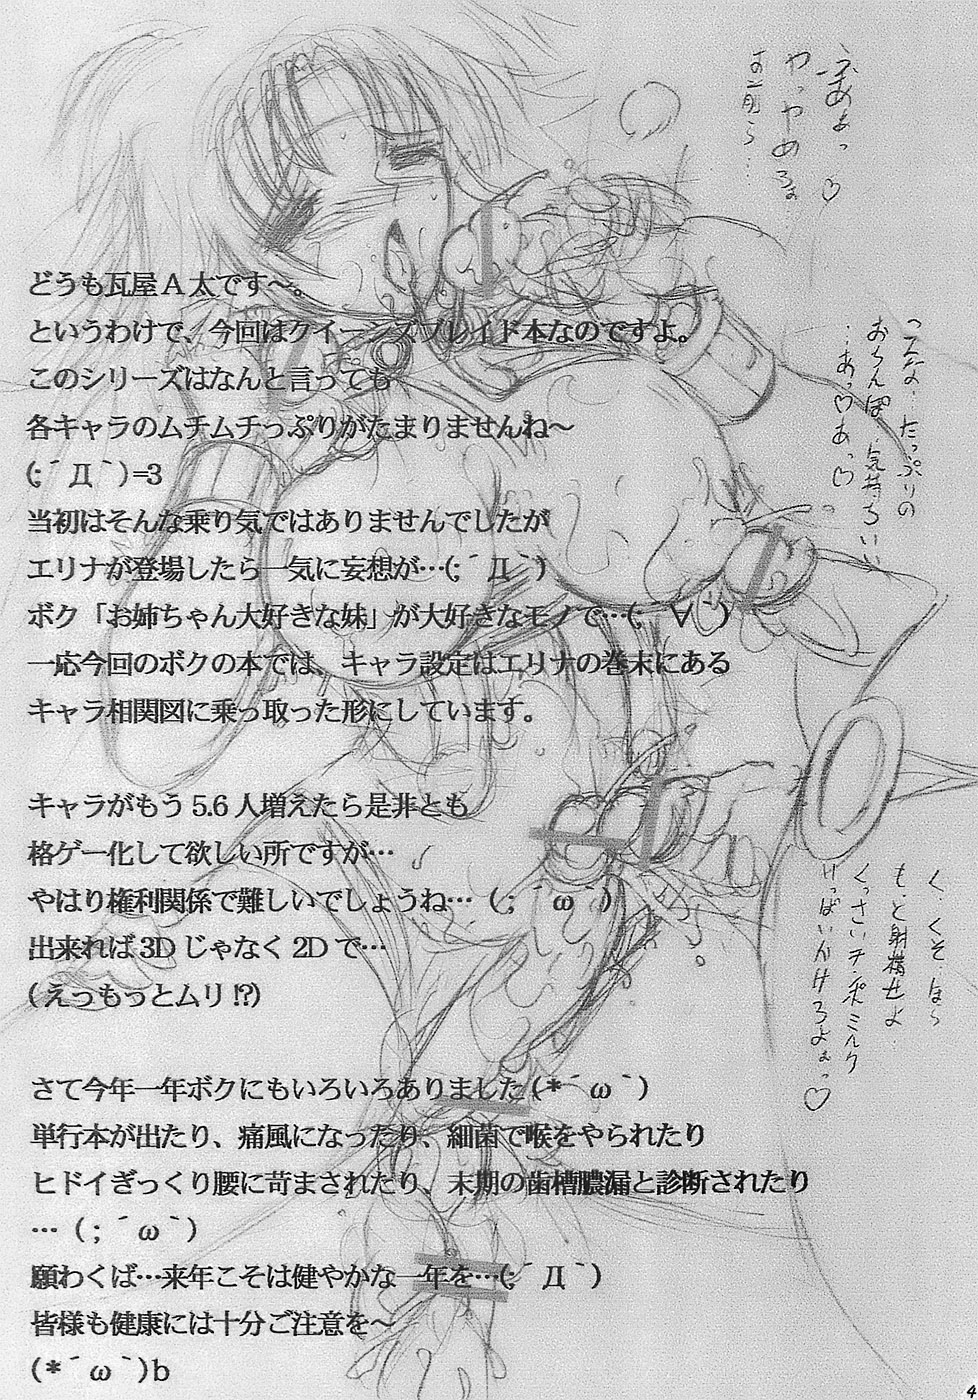 どうも瓦屋A太です～。
というわけで、今回はクイーンズブレイド本なのですよ。
このシリーズはなんと言っても
各キャラのムチムチっぷりがたまりませんね～
(;´Д｀)=3
当初はそんな乗り気ではありませんでしたが
エリナが登場したら一気に妄想が…(;´Д｀)
ボク「お姉ちゃん大好きな妹」が大好きなモノで…(;´∀｀)
一応今回のボクの本では、キャラ設定はエリナの巻末にある
キャラ相関図に乗っ取った形にしています。
キャラがもう5.6人増えたら是非とも
格ゲー化して欲しい所ですが…
やはり権利関係で難しいでしょうね…(；´ω｀)
出来れば3Dじゃなく2Dで…
(えっもっとムリ!?)
さて今年一年ボクにもいろいろありました(*´ω｀)
単行本が出たり、痛風になったり、細菌で喉をやられたり
ヒドイぎっくり腰に苛まされたり、末期の歯槽膿漏と診断されたり
…（；´ω｀）
願わくば…来年こそは健やかな一年を…(;´Д｀)
皆様も健康には十分ご注意を～
(*´ω｀)b
ふあぁっ♡
やっやめろぉ
こんな、たっぷりの
おちんぽ、気持ちいい
…あっ♡あっ♡
く、くそ、ほら
もっと射精せよ
くっさいチンポミルク
いっぱいかけろよぉっ♡
4